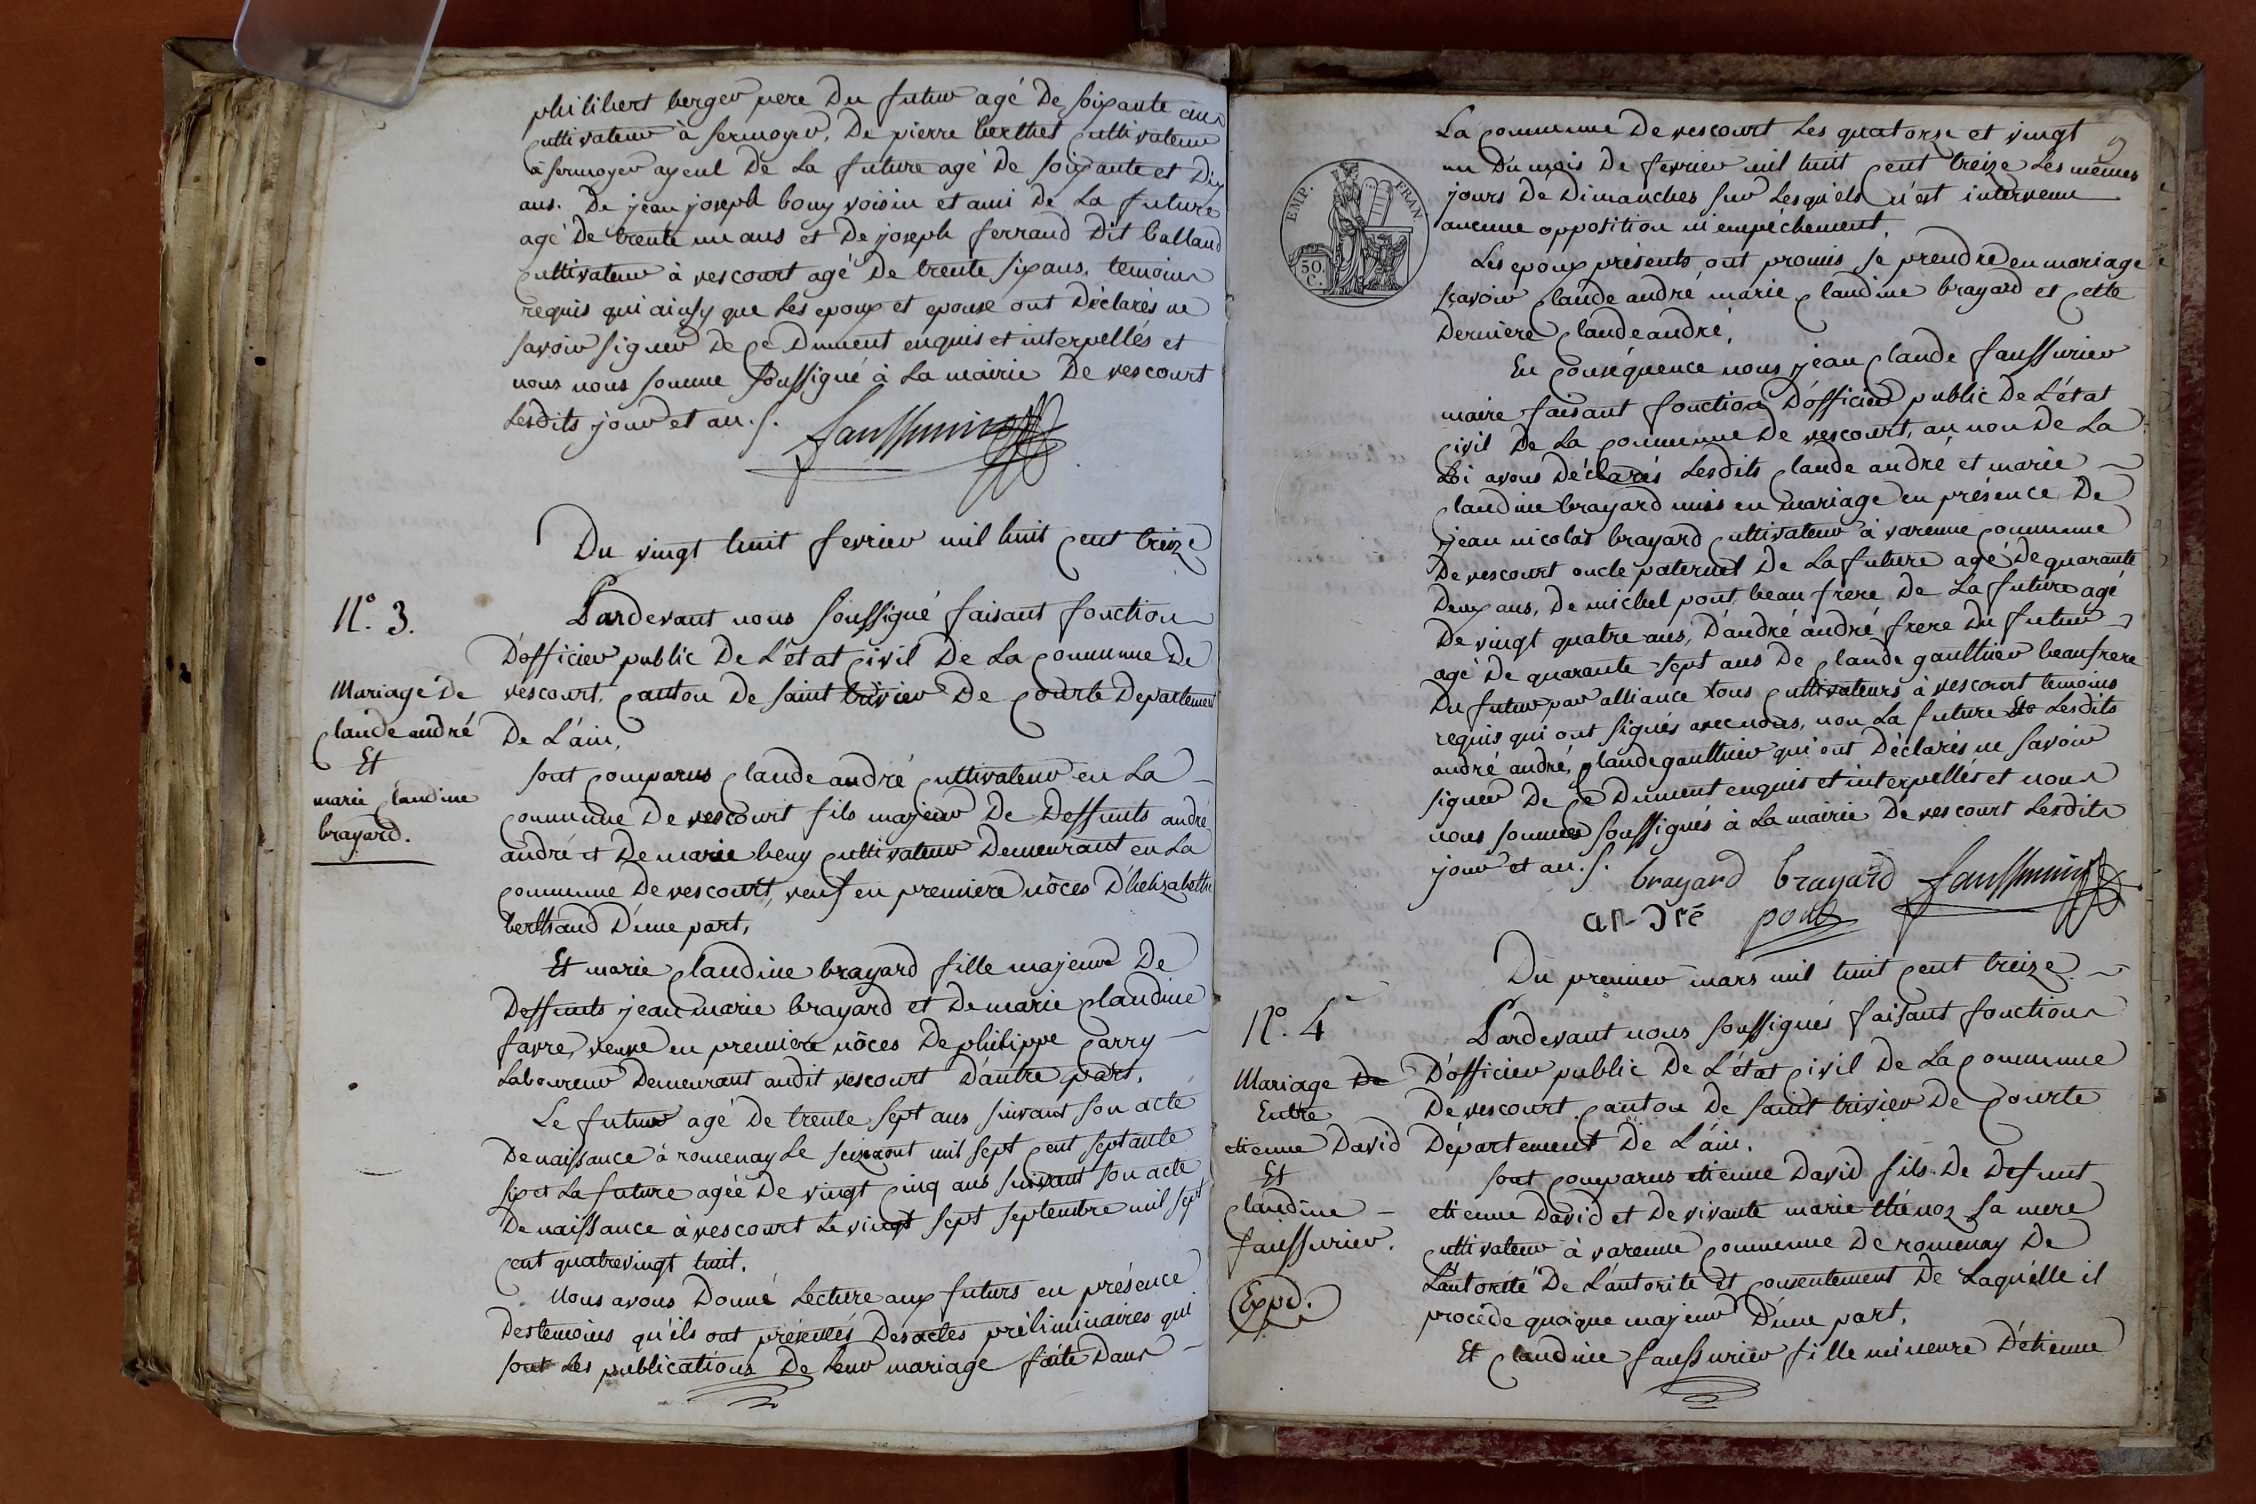 philibert berger pere Du futur agé De soixante ans
cultivateur à sermoyer, De pierre berthet cultivateur
à sermoyer ayeul De La future agé De soixante et Dix
ans. De jean joseph bouy voisin et ami De La future
agé De trente un ans et De joseph ferraud Dit balland
cultivateur à vescourt agé De trente six ans. temoins
requis qui ainsy que Les epoux et epouse ont Déclarés ne
savoir signer De ce Dument enquis et interpellés et
nous nous somme soussigné à La mairie De vescourt
Lesdits jour et an ./.
faussurier
Du vingt huit fevrier mil huit cent treize
N.o 3.
Mariage De
claude andré
Et
marie claudine
brayard.
Pardevant nous soussigné faisant fonction
D'officier public De L'état civil De La commune De
vescourt. canton De saint trivier De courte Departement
De L'ain,
sont comparus claude andré cultivateur en La
commune De vescourt fils majeur De Deffunts andré
andré et De marie beny cultivateur Demeurant en La
commune De vescourt, veuf en premiere nôces D'helizabethe
berthaud D'une part,
Et marie claudine brayard fille majeure De
Deffunts jean marie brayard et De marie claudine
favre, veuve en premiere nôces De philippe carry
Laboureur Demeurant audit vescourt D'autre part.
Le futur agé De trente sept ans suivant son acte
De naissance à romenay Le seize aout mil sept cent septante
six et La future agée De vingt cinq ans suivant son acte
De naissance à vescourt Le vingt sept septembre mil sept
cent quatrevingt huit.
Nous avous Donné Lecture aux futurs en présence
Des temoins qu'ils ont présentés Des actes préliminaires qui
sont Les publications De Leur mariage faite Dans
9
EMP. FRAN.
50. C.
La commune De vescourt Les quatorze et vingt
un Du mois De fevrier mil huit cent treize Les mêmes
jours De Dimanches sur Lesquels n'est intervenu
aucune opposition ni empéchement,
Les epoux présents ont promis se prendre en mariage
sçavoir claude andré marie claudine brayard et cette
Derniere claude andré,
En conséquence nous jean claude faussurier
maire faisant fonction D'officier public De L'état
civil De La commune De vescourt, au non De La
Loi avons Déclarés Lesdits claude andré et marie
claudine brayard unis en mariage en présence De
jean nicolas brayard cultivateur à varenne commune
De vescourt oncle paternel De La future agé De quarante
Deux ans, De michel pont beau frere De La future agé
De vingt quatre ans, D'andré andré frere Du futur
agé De quarante sept ans De claude gaulthier beaufrere
Du futur par alliance tous cultivateurs à vescourt temoins
requis qui ont signés avec nous, non La future Lesdits
andré andré, claude gaulthier qui ont Déclarés ne savoir
signer De ce Dument enquis et interpellés et nous
nous sommes soussignés à La mairie De vescourt Lesdits
jour et an ./. brayard brayard faussurier
andré pont
Du premier mars mil huit cent treize
N.o 4
Mariage De
Entre
etienne David
Et
claudine
faussurier.
Expd.
Pardevant nous soussignés faisant fonction
D'officier public De L'état civil De La commune
De vescourt canton De saint trivier De courte
Département De L'ain.
sont comparus etienne David fils De Defunt
etienne David et De vivante marie thénoz sa mere
cultivateur à varenne commune De romenay De
L'autorité De L'autorite et consentement De Laquelle il
procéde quoique majeur D'une part,
Et claudine faussurier fille mineure D'étienne